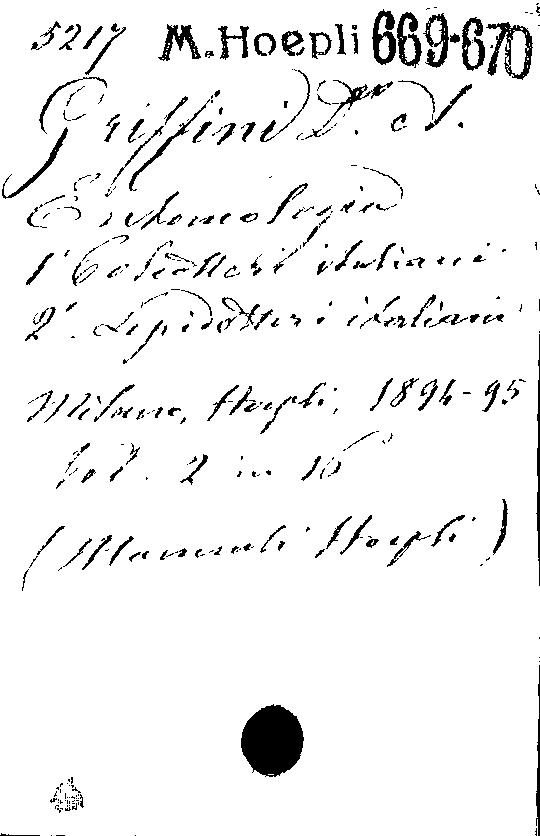 5217 M. Hoepli 669-670
Griffini D.er A.
Entomologia
1° Coleotteri italiani
2°. Lepidotteri italiani
Milano, Hoepli, 1894-95
Vol. 2 in 16°
(Manuali Hoepli)